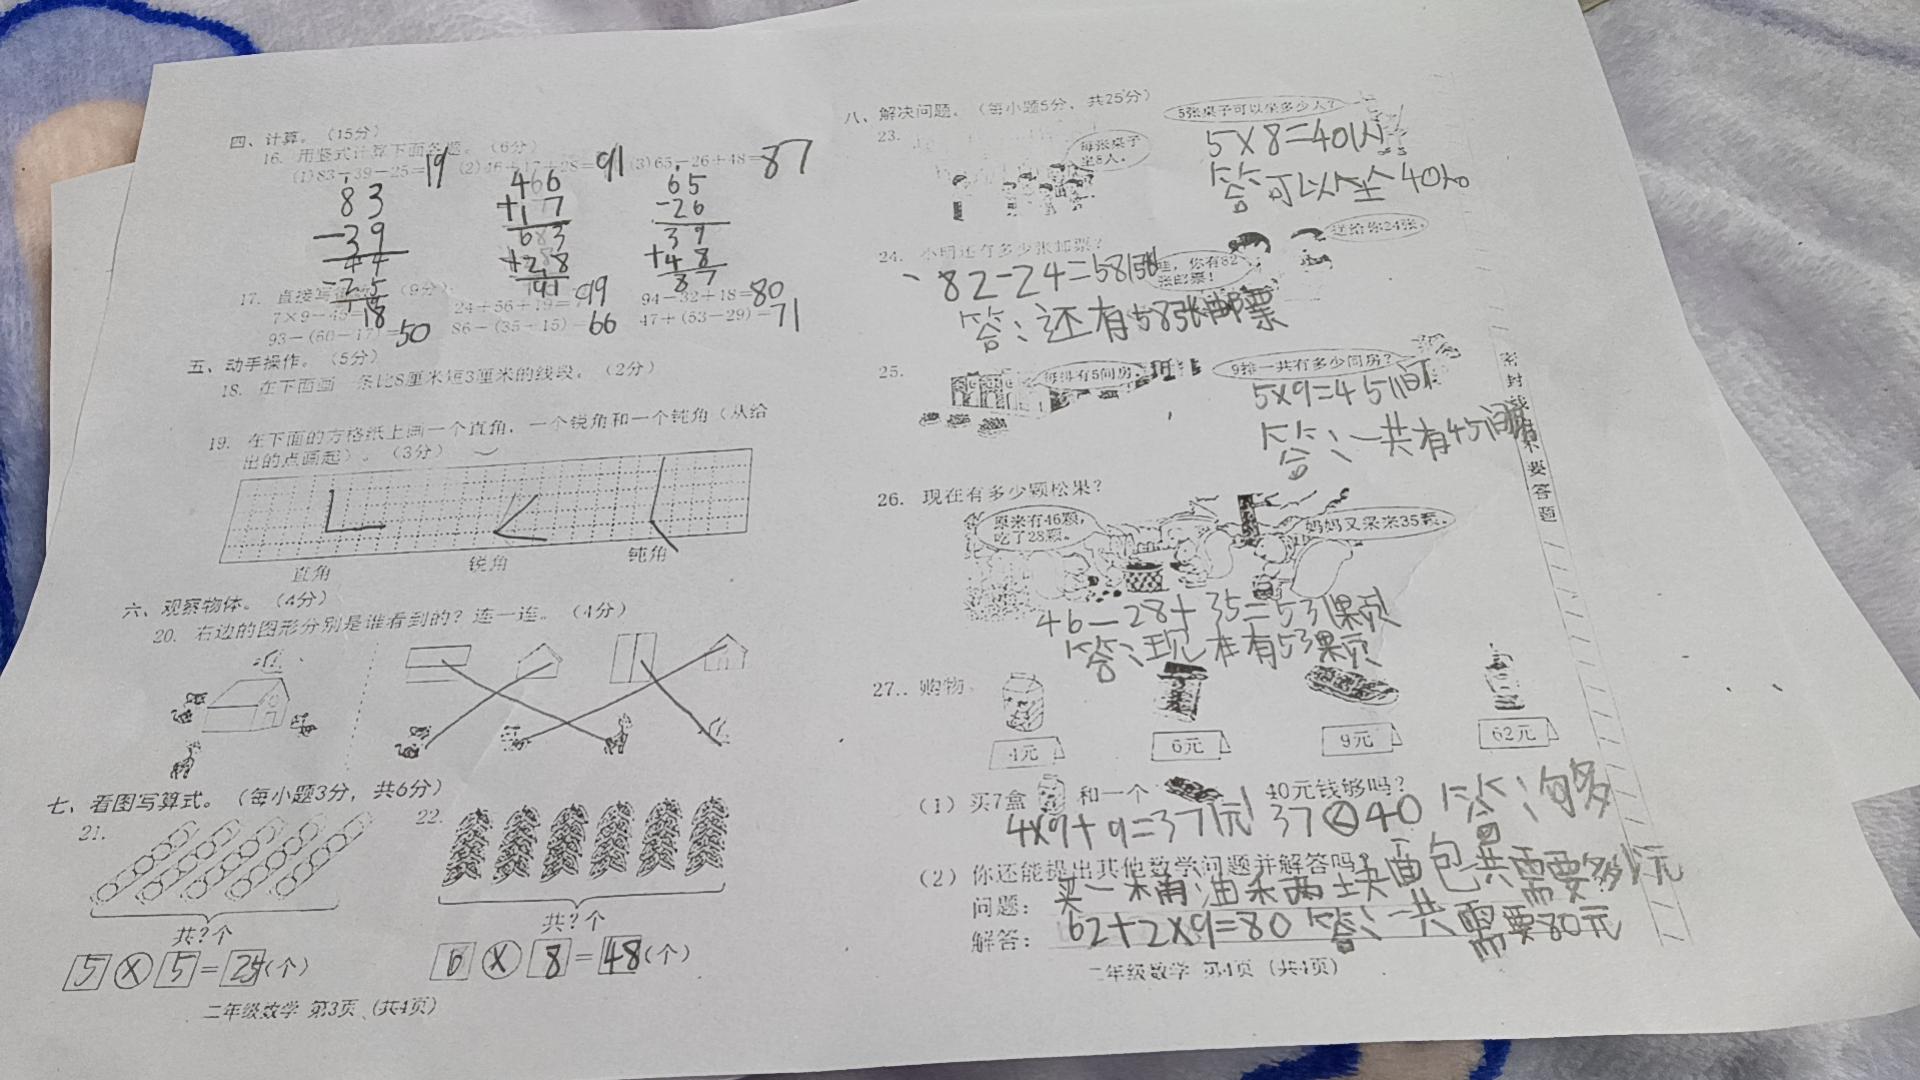 四、计算。（15分）
16. 用竖式计算下面各题。（6分）
(1)83－39－25=19 (2)46＋17＋28=91 (3)65－26＋48=87
83
－39
44
－25
19
46
＋17
63
＋28
91
65
－26
39
＋48
87
17. 直接写得数。（9分）
7×9－45=18 24＋56＋19=99 94－32＋18=80
93－(60－17)=50 86－(35－15)=66 47＋(53－29)=71
五、动手操作。（5分）
18. 在下面画一条比8厘米短3厘米的线段。（2分）
19. 在下面的方格纸上画一个直角，一个锐角和一个钝角（从给
出的点画起）。（3分）
直角 锐角 钝角
六、观察物体。（4分）
20. 右边的图形分别是谁看到的？连一连。（4分）
七、看图写算式。（每小题3分，共6分）
21.
共?个
5×5=25(个)
22.
共?个
6×8=48(个)
二年级数学 第3页（共4页）
八、解决问题。（每小题5分，共25分）
23.
每张桌子
坐8人。
5张桌子可以坐多少人？
5×8=40(人)
答可以坐40人
24. 小明还有多少张邮票？
哇，你有82
张邮票！
送给你24张。
82－24=58(张)
答：还有58张邮票
25.
每排有5间房。
9排一共有多少间房？
5×9=45(间)
答：一共有45间
26. 现在有多少颗松果？
原来有46颗，
吃了28颗。
妈妈又采来35颗。
46－28＋35=53(颗)
答：现在有53颗
27. 购物。
4元 6元 9元 62元
（1）买7盒 和一个 40元钱够吗？
4×9＋9=37(元) 37<40 答：句多
（2）你还能提出其他数学问题并解答吗？
问题：买一桶油禾两块面包共需要多少元
解答：62＋2×9=80 答：一共需要80元
二年级数学 第4页（共4页）
密封线 要答题